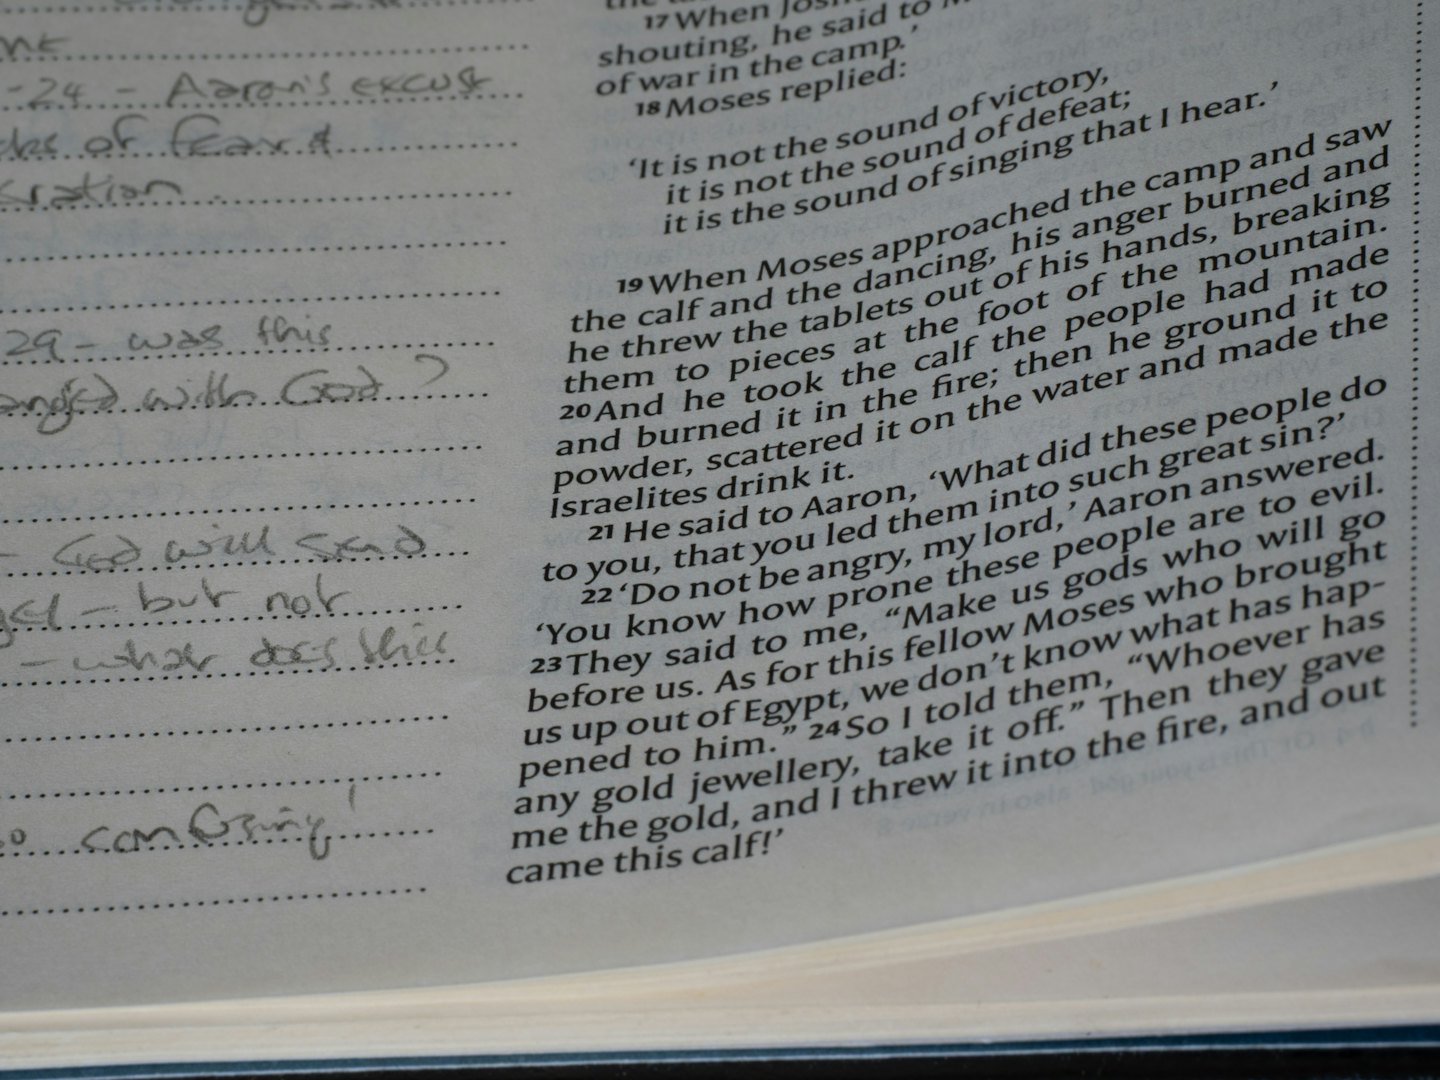 -24 - Aaron's excuse
of fear &
29 - was this
with God?
- God will send
- but not
- what does this
confusing!
17 When
shouting, he said to
of war in the camp.'
18 Moses replied:
'It is not the sound of victory,
it is not the sound of defeat;
it is the sound of singing that I hear.'
19 When Moses approached the camp and saw
the calf and the dancing, his anger burned and
he threw the tablets out of his hands, breaking
them to pieces at the foot of the mountain.
20 And he took the calf the people had made
and burned it in the fire; then he ground it to
powder, scattered it on the water and made the
Israelites drink it.
21 He said to Aaron, 'What did these people do
to you, that you led them into such great sin?'
22 'Do not be angry, my lord,' Aaron answered.
'You know how prone these people are to evil.
23 They said to me, "Make us gods who will go
before us. As for this fellow Moses who brought
us up out of Egypt, we don't know what has hap-
pened to him." 24 So I told them, "Whoever has
any gold jewellery, take it off." Then they gave
me the gold, and I threw it into the fire, and out
came this calf!'